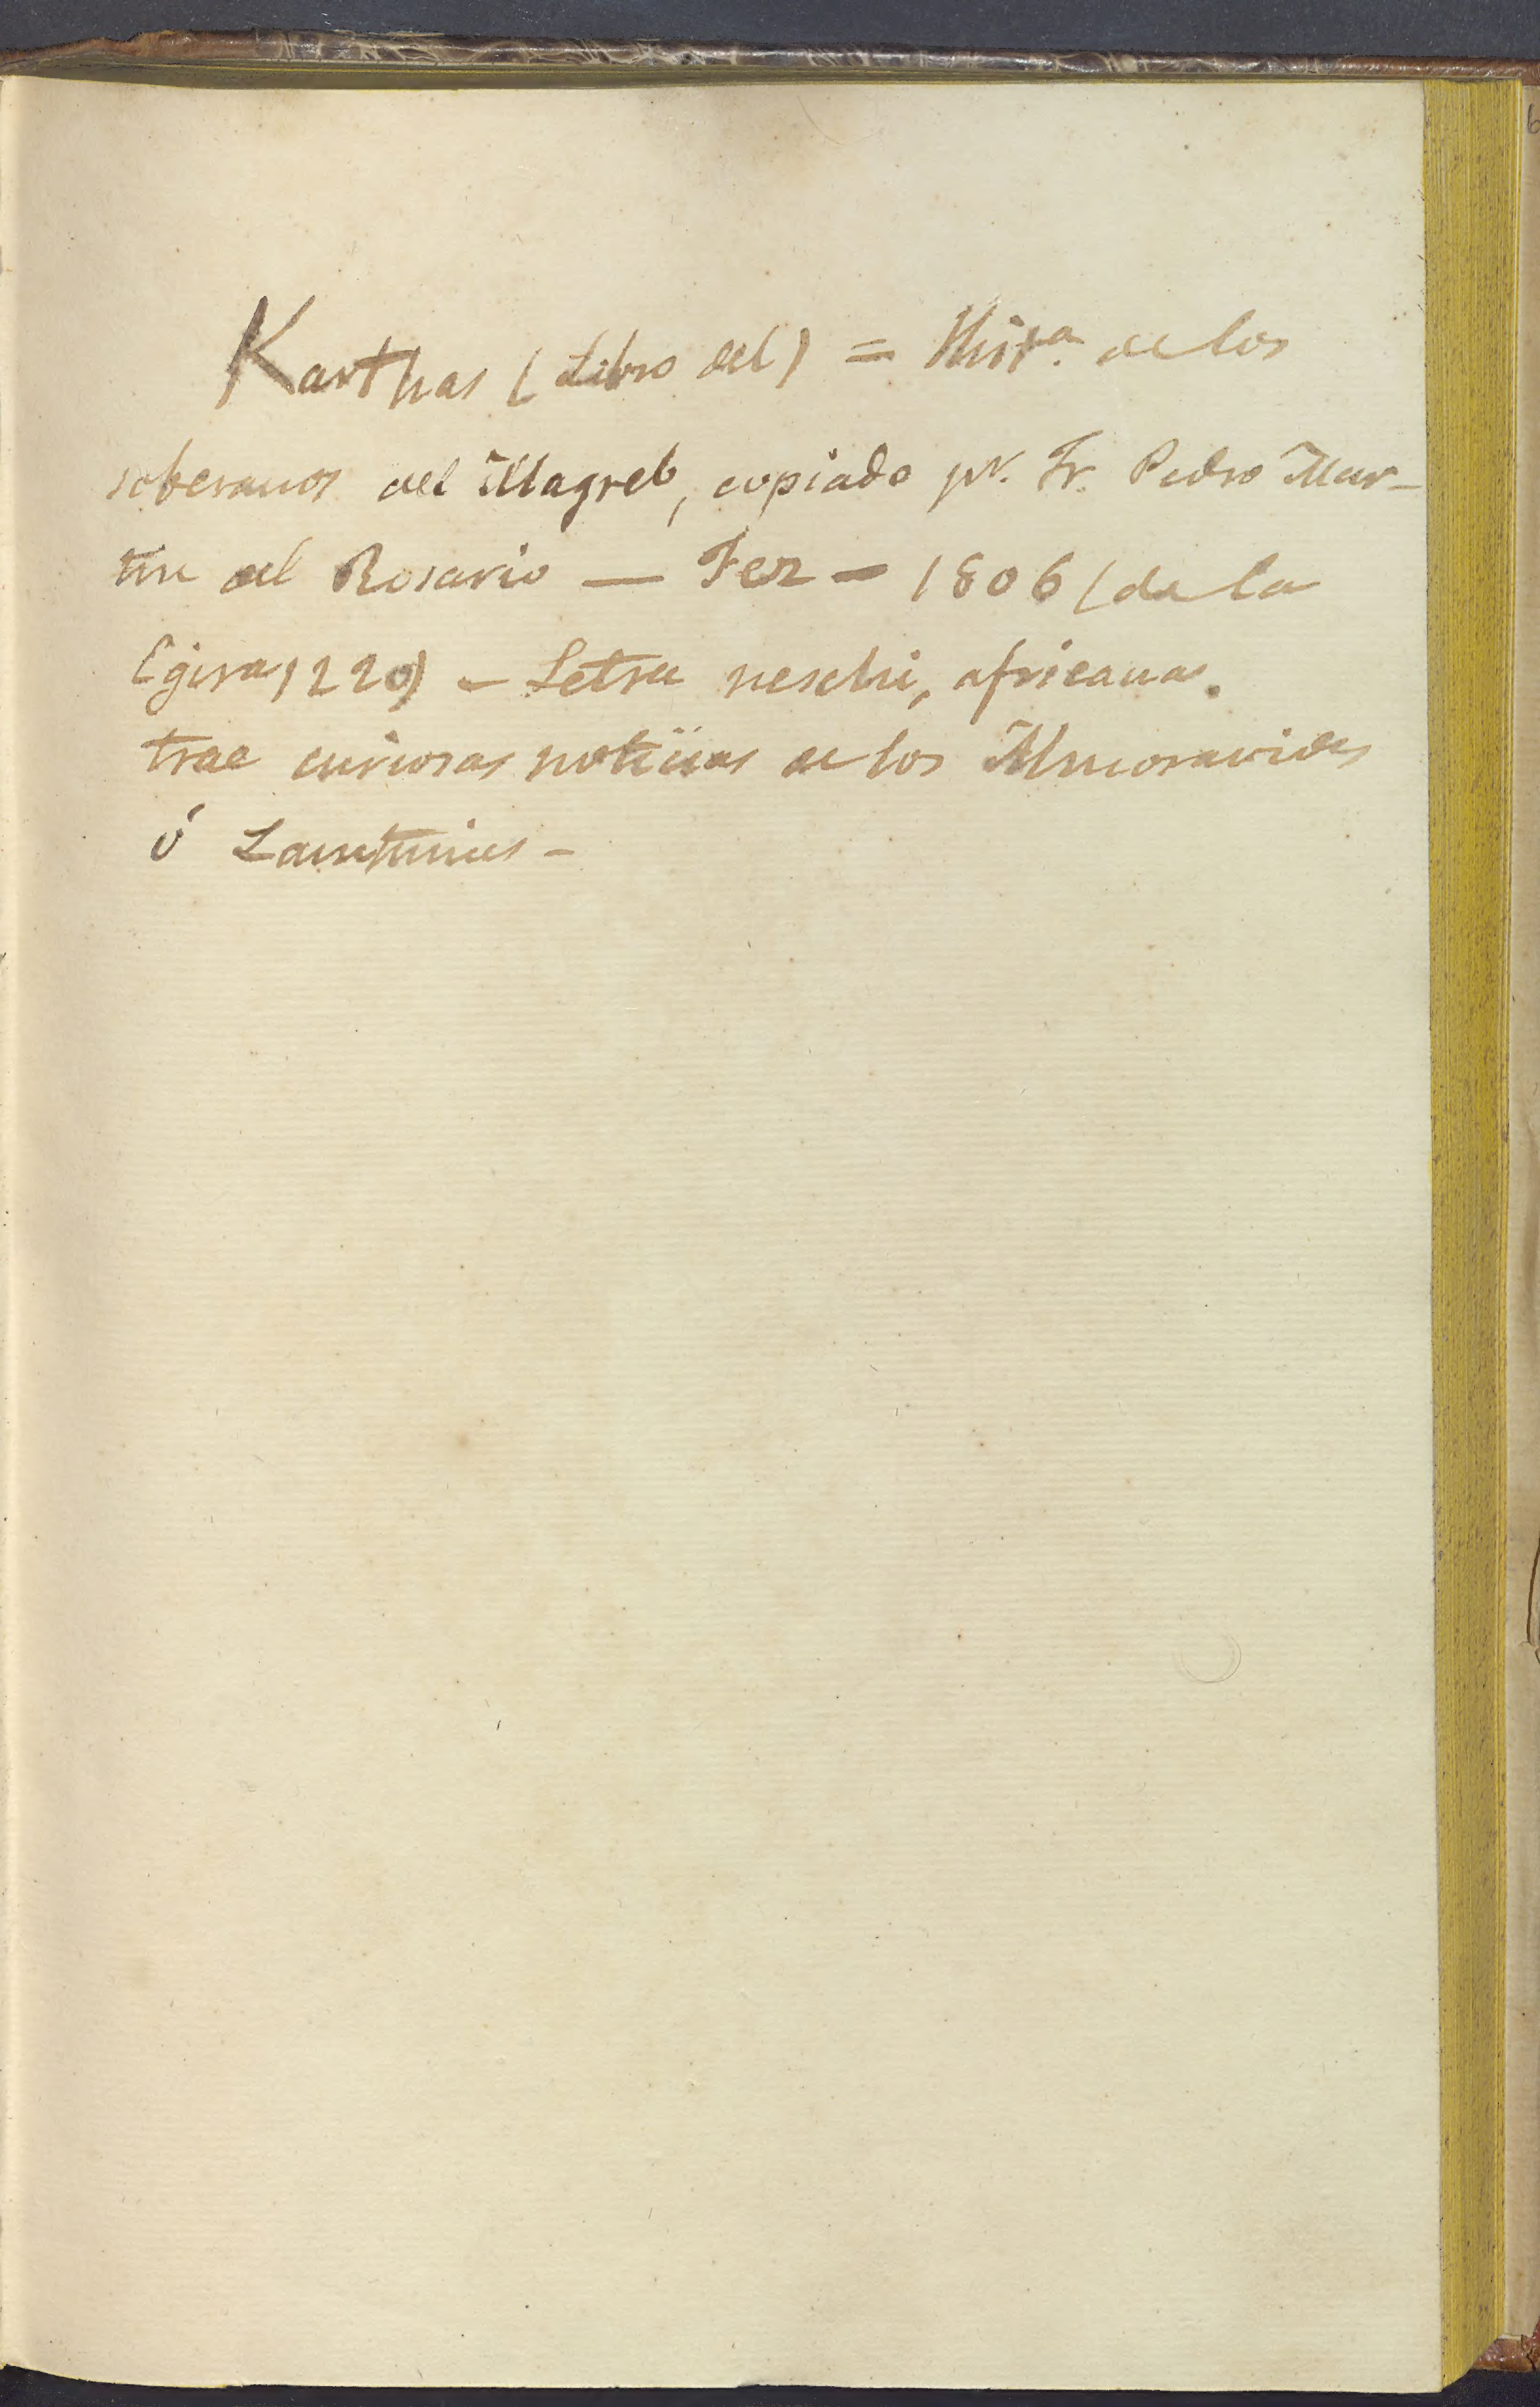 Karthas (Libro del) = Hist.ª de los
soberanos del Magreb, copiado pr. Fr. Pedro Mar-
tin del Rosario — Fez — 1806 (de la
Egira 1220) — Letra neschi, africana.
trae curiosas noticias de los Almoravides
ó Lamtunies -